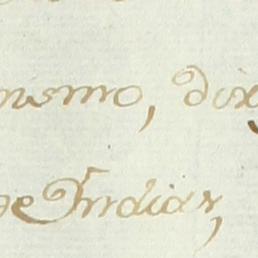 mismo, dix
de Indias,